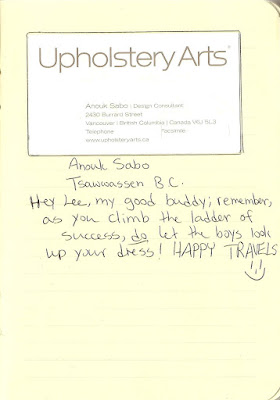 Upholstery Arts
Anouk Sabo | Design Consultant
2430 Burrard Street
Vancouver | British Columbia | Canada V6J 5L3
Telephone Facsimile
www.upholsteryarts.ca
Anouk Sabo
Tsawwassen B.C.
Hey Lee, my good buddy; remember,
as you climb the ladder of
success, do let the boys look
up your dress! HAPPY TRAVELS